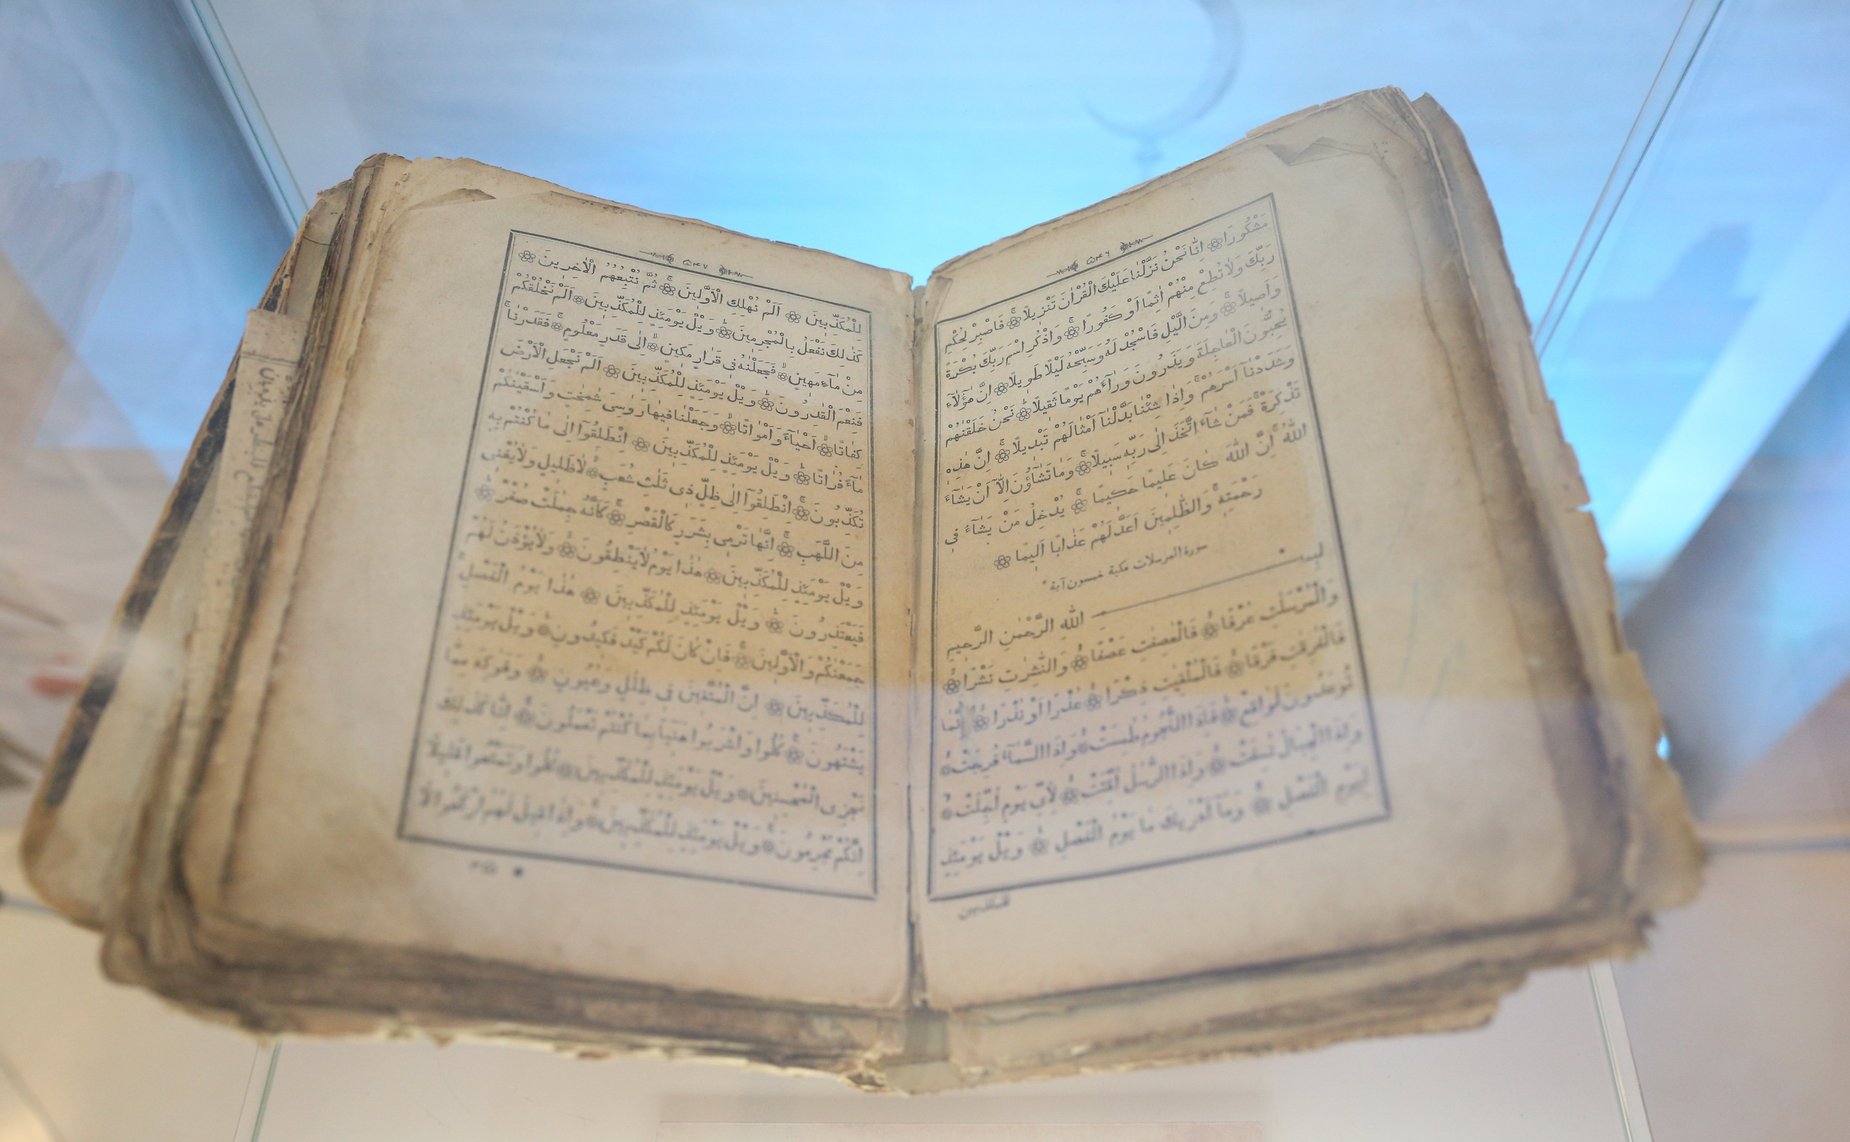 ٥٤٦
مَشْكُورًا ۝ اِنَّا نَحْنُ نَزَّلْنَا عَلَيْكَ الْقُرْاٰنَ تَنْزِيلًا ۝ فَاصْبِرْ لِحُكْمِ
رَبِّكَ وَلَا تُطِعْ مِنْهُمْ اٰثِمًا اَوْ كَفُورًا ۝ وَاذْكُرِ اسْمَ رَبِّكَ بُكْرَةً
وَاَصِيلًا ۝ وَمِنَ الَّيْلِ فَاسْجُدْ لَهُ وَسَبِّحْهُ لَيْلًا طَوِيلًا ۝ اِنَّ هٰٓؤُلَٓاءِ
يُحِبُّونَ الْعَاجِلَةَ وَيَذَرُونَ وَرَٓاءَهُمْ يَوْمًا ثَقِيلًا ۝ نَحْنُ خَلَقْنٰهُمْ
وَشَدَدْنَٓا اَسْرَهُمْ وَاِذَا شِئْنَا بَدَّلْنَٓا اَمْثَالَهُمْ تَبْدِيلًا ۝ اِنَّ هٰذِهِ
تَذْكِرَةٌ فَمَنْ شَٓاءَ اتَّخَذَ اِلٰى رَبِّهِ سَبِيلًا ۝ وَمَا تَشَٓاؤُنَ اِلَّٓا اَنْ يَشَٓاءَ
اللّٰهُ اِنَّ اللّٰهَ كَانَ عَلِيمًا حَكِيمًا ۝ يُدْخِلُ مَنْ يَشَٓاءُ فِى
رَحْمَتِهِ وَالظّٰلِمِينَ اَعَدَّ لَهُمْ عَذَابًا اَلِيمًا ۝
سورة المرسلات مكية خمسون آية
بِسْمِ اللّٰهِ الرَّحْمٰنِ الرَّحِيمِ
وَالْمُرْسَلٰتِ عُرْفًا ۝ فَالْعٰصِفٰتِ عَصْفًا ۝ وَالنّٰشِرٰتِ نَشْرًا ۝
فَالْفٰرِقٰتِ فَرْقًا ۝ فَالْمُلْقِيٰتِ ذِكْرًا ۝ عُذْرًا اَوْ نُذْرًا ۝ اِنَّمَا
تُوعَدُونَ لَوَاقِعٌ ۝ فَاِذَا النُّجُومُ طُمِسَتْ ۝ وَاِذَا السَّمَٓاءُ فُرِجَتْ ۝
وَاِذَا الْجِبَالُ نُسِفَتْ ۝ وَاِذَا الرُّسُلُ اُقِّتَتْ ۝ لِاَىِّ يَوْمٍ اُجِّلَتْ ۝
لِيَوْمِ الْفَصْلِ ۝ وَمَٓا اَدْرٰيكَ مَا يَوْمُ الْفَصْلِ ۝ وَيْلٌ يَوْمَئِذٍ
للمكذبين
٥٤٧
لِلْمُكَذِّبِينَ ۝ اَلَمْ نُهْلِكِ الْاَوَّلِينَ ۝ ثُمَّ نُتْبِعُهُمُ الْاٰخِرِينَ ۝
كَذٰلِكَ نَفْعَلُ بِالْمُجْرِمِينَ ۝ وَيْلٌ يَوْمَئِذٍ لِلْمُكَذِّبِينَ ۝ اَلَمْ نَخْلُقْكُمْ
مِنْ مَٓاءٍ مَهِينٍ ۝ فَجَعَلْنٰهُ فِى قَرَارٍ مَكِينٍ ۝ اِلٰى قَدَرٍ مَعْلُومٍ ۝ فَقَدَرْنَا
فَنِعْمَ الْقٰدِرُونَ ۝ وَيْلٌ يَوْمَئِذٍ لِلْمُكَذِّبِينَ ۝ اَلَمْ نَجْعَلِ الْاَرْضَ
كِفَاتًا ۝ اَحْيَٓاءً وَاَمْوَاتًا ۝ وَجَعَلْنَا فِيهَا رَوَاسِىَ شٰمِخٰتٍ وَاَسْقَيْنٰكُمْ
مَٓاءً فُرَاتًا ۝ وَيْلٌ يَوْمَئِذٍ لِلْمُكَذِّبِينَ ۝ اِنْطَلِقُٓوا اِلٰى مَا كُنْتُمْ بِهِ
تُكَذِّبُونَ ۝ اِنْطَلِقُٓوا اِلٰى ظِلٍّ ذِى ثَلٰثِ شُعَبٍ ۝ لَا ظَلِيلٍ وَلَا يُغْنِى
مِنَ اللَّهَبِ ۝ اِنَّهَا تَرْمِى بِشَرَرٍ كَالْقَصْرِ ۝ كَاَنَّهُ جِمٰلَتٌ صُفْرٌ ۝
وَيْلٌ يَوْمَئِذٍ لِلْمُكَذِّبِينَ ۝ هٰذَا يَوْمُ لَا يَنْطِقُونَ ۝ وَلَا يُؤْذَنُ لَهُمْ
فَيَعْتَذِرُونَ ۝ وَيْلٌ يَوْمَئِذٍ لِلْمُكَذِّبِينَ ۝ هٰذَا يَوْمُ الْفَصْلِ
جَمَعْنٰكُمْ وَالْاَوَّلِينَ ۝ فَاِنْ كَانَ لَكُمْ كَيْدٌ فَكِيدُونِ ۝ وَيْلٌ يَوْمَئِذٍ
لِلْمُكَذِّبِينَ ۝ اِنَّ الْمُتَّقِينَ فِى ظِلٰلٍ وَعُيُونٍ ۝ وَفَوَاكِهَ مِمَّا
يَشْتَهُونَ ۝ كُلُوا وَاشْرَبُوا هَنِٓيئًا بِمَا كُنْتُمْ تَعْمَلُونَ ۝ اِنَّا كَذٰلِكَ
نَجْزِى الْمُحْسِنِينَ ۝ وَيْلٌ يَوْمَئِذٍ لِلْمُكَذِّبِينَ ۝ كُلُوا وَتَمَتَّعُوا قَلِيلًا
اِنَّكُمْ مُجْرِمُونَ ۝ وَيْلٌ يَوْمَئِذٍ لِلْمُكَذِّبِينَ ۝ وَاِذَا قِيلَ لَهُمُ ارْكَعُوا لَا